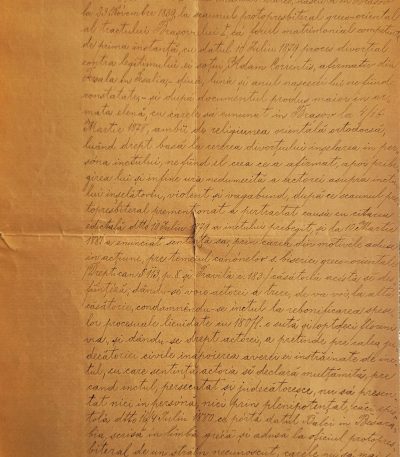 la 23 Novembre 1839, la scaunul protopresbiteral greco-oriental
al tractului Brașovului I, ca forul matrimonial competent
de prima instanță, cu datul 14 Iuliu 1879 proces divorțial
contra legitimului ei soțiu Adam Correntis, afirmativ din
în Italia, ziua, luna și anul nascerii lui ne fiind
constatate, și după documentul produs maior în ar-
mata elenă, cu care se cununat în Brașov în 4/16
Martie 1878, ambii de religiunea orientală ortodocsă,
luând drept basă la cererea divorțului înșelarea în per-
sona inctului, ne fiind el cea ce a afirmat, apoi pribe-
girea lui și infine ura neîmblânzită a actorei asupra inctu-
lui înșelătoriu, violent și vagabund, după ce scaunul pro-
topresbiteral prementionat a pertractat causa cu citarea
edictală dto 18 Iuliu 1879 a inctului pribegit, și la Martie
1881 a enunciat sentința sa, prin carea din motivele aduse
în acțiune, pre temeiul canónelor s. biserici greco-orientale
Drept. can. § 113, p. 8 și Pravila c. 183, căsătoria acesta, și des-
ființază, dându-se voie actorei a trece, de va voi, la altă
căsătorie, condamnându-se inctul la rebonificarea spese-
lor procesuale licuidate cu 180 fl. o sută și optdeci floreni
v. a., și dându-se drept actorei, a pretinde pre calea ju-
decătoriei civile înapoierea averei ei înstrăinate de inc-
tul, cu care sentință actora s'a declarat mulțămită, pre
cand inctul, persecutat și judecătoresce, nu s'a presen-
tat nici în persona, nici prin plenipotențiat, căci epis-
tola dto 16/4 Iuliu 1879 ce portă datul Balci în Basara-
bia, scrisă în limba grecă și adusă la oficiul protopres-
biteral de un străin necunoscut, carele nu sa mai